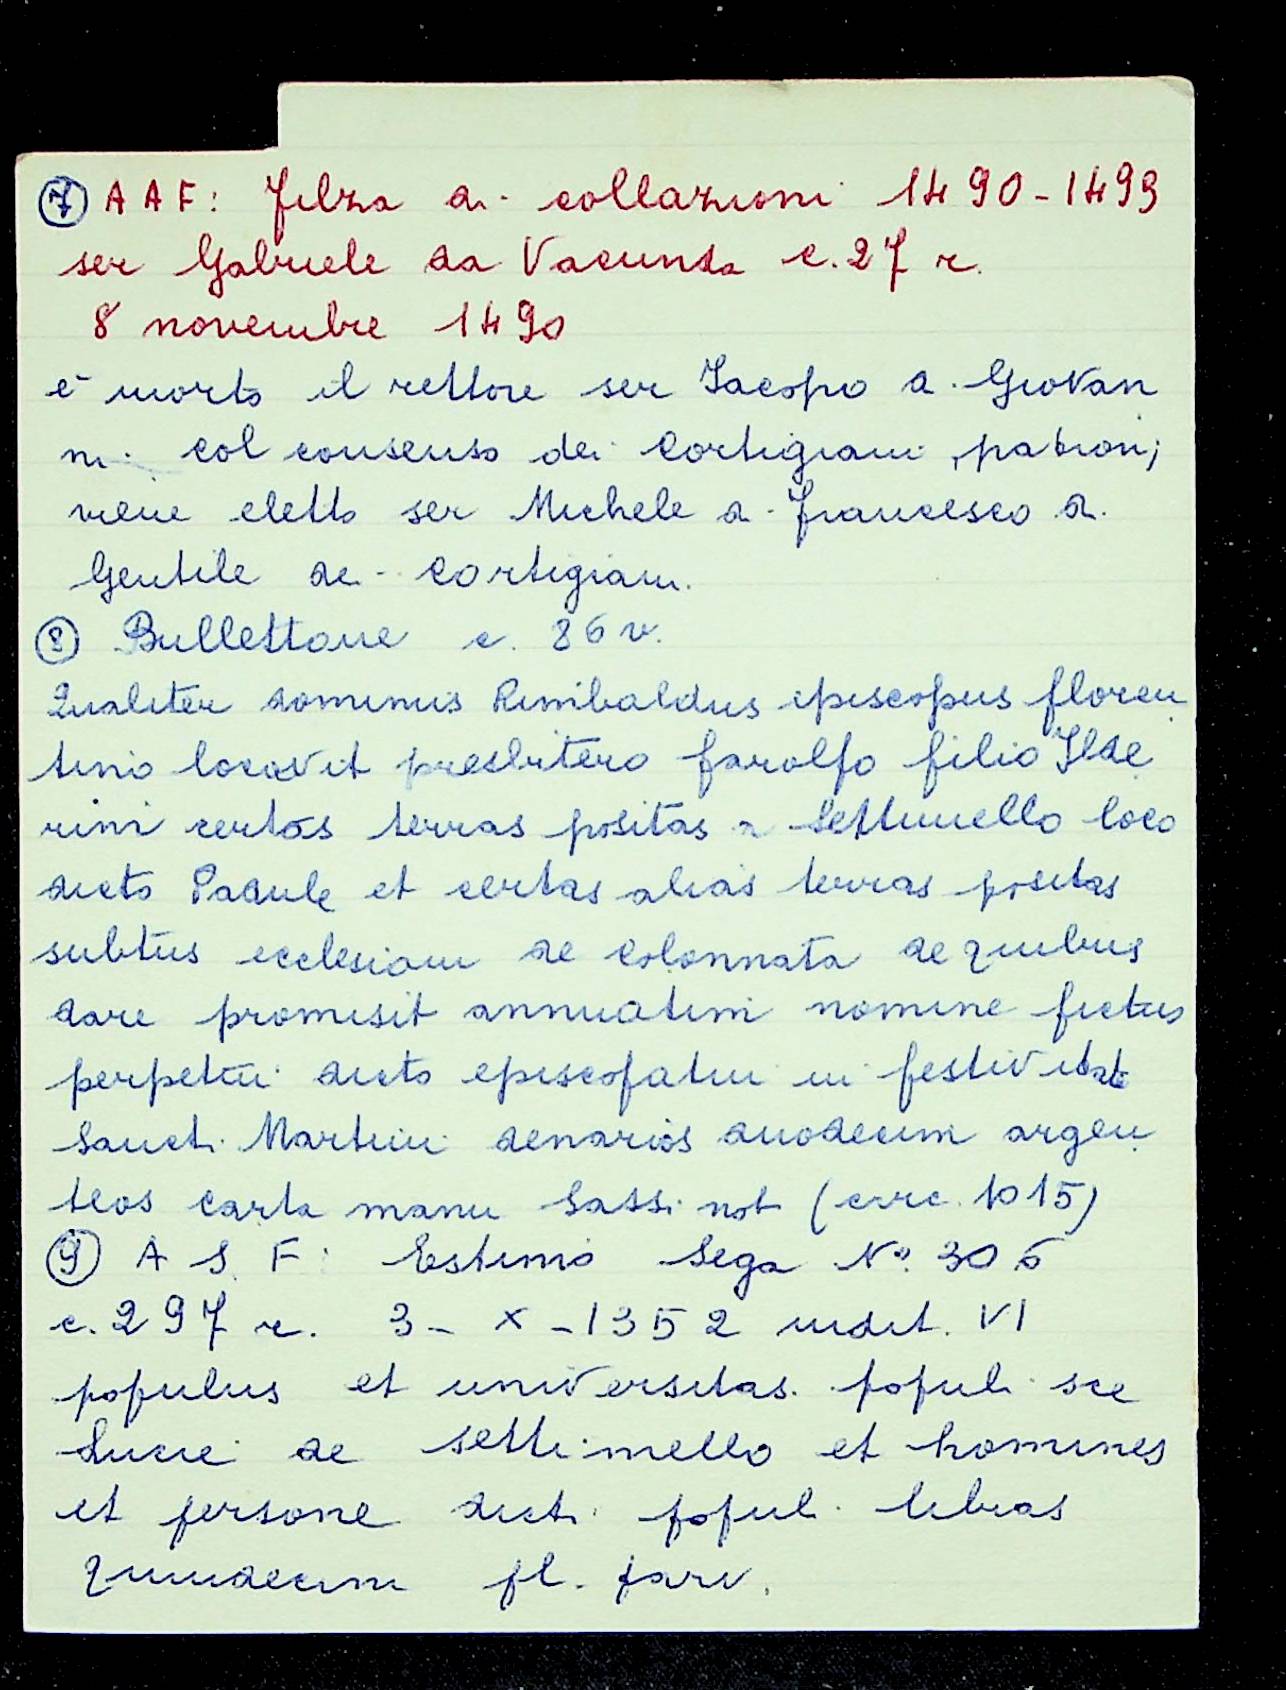 ⑦ A A F: Filza di collazioni 1490-1499
ser Gabriele da Vacunda c. 27 r.
8 novembre 1490
è morto il rettore ser Iacopo di Giovan
ni. col consenso dei Cortigiani, patroni;
viene eletto ser Michele di Francesco di
Gentile dei Cortigiani.
⑧ Bullettone c. 86 v.
Qualiter dominus Rimbaldus episcopus floren
tino locavit presbitero farolfo filio Ilde
rini certas terras positas a Settimello loco
dicto Padule et certas alias terras positas
subtus ecclesiam de Colonnata de quibus
dare promisit annuatim nomine fictus
perpetui dicto episcopatui in festivitate
Sancti Martini denarios duodecim argen
teos carta manu Sassi not (circ. 1015)
⑨ A S. F: Estimo Sega N° 306
c. 297 r. 3 - X - 1352 indit. VI
populus et universitas populi sce
Lucie de Settimello et homines
et persone dicti populi libras
quindecim fl. parv.